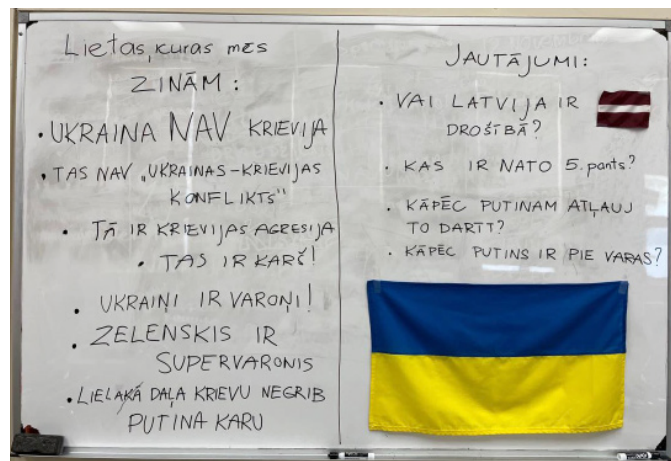 Lietas, kuras mēs
ZINĀM:
• UKRAINA NAV KRIEVIJA
• TAS NAV „UKRAINAS-KRIEVIJAS
KONFLIKTS"
• TĀ IR KRIEVIJAS AGRESIJA
• TAS IR KARŠ!
• UKRAIŅI IR VAROŅI!
• ZELENSKIS IR
SUPERVARONIS
• LIELĀKĀ DAĻA KRIEVU NEGRIB
PUTINA KARU
JAUTĀJUMI:
• VAI LATVIJA IR
DROŠĪBĀ?
• KAS IR NATO 5. pants?
• KĀPĒC PUTINAM ATĻAUJ
TO DARĪT?
• KĀPĒC PUTINS IR PIE VARAS?